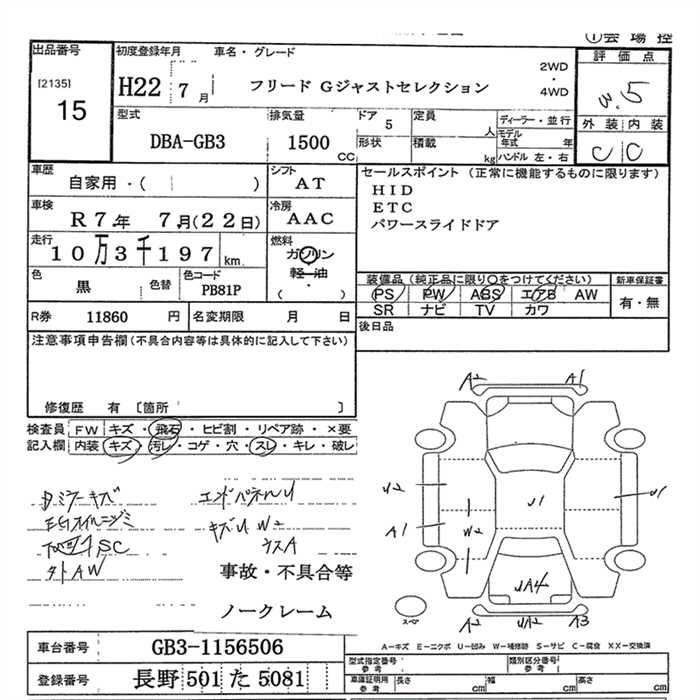 ①会場控
出品番号
[2135]
15
初度登録年月 車名・グレード
H22 7月
フリード Gジャストセレクション
2WD
・
4WD
評価点
3.5
外装 内装
C C
型式
DBA-GB3
排気量
1500
CC
ドア
5
形状
定員
人
積載
kg
ディーラー・並行
モデル年式 年
ハンドル 左・右
車歴
自家用・( )
シフト
AT
車検
R7年 7月(22日)
冷房
AAC
走行
10万3千197 km
燃料
ガソリン
軽・油
( ・ )
色
黒
色替
色コード
PB81P
R券 11860 円
名変期限 月 日
セールスポイント (正常に機能するものに限ります)
HID
ETC
パワースライドドア
装備品(純正品に限り〇をつけてください)
PS PW ABS エアB AW
SR ナビ TV カワ
新車保証書
有・無
後日品
注意事項申告欄(不具合内容等は具体的に記入して下さい)
修復歴 有 〔箇所 〕
検査員 FW キズ・飛石・ヒビ割・リペア跡・×要
記入欄 内装 キズ・汚レ・コゲ・穴・スレ・キレ・破レ
エンドパネルU
キズU W2
SC
AW
事故・不具合等
ノークレーム
A2 A1
U2 U1 U1
A1 W2
UA4
スペア
A2 UA2 A3
A-キズ E-エクボ U-凹み W-補修跡 S-サビ C-腐食 XX-交換済
車台番号 GB3-1156506
登録番号 長野 501 た 5081
型式指定番号 参考
類別区分番号 参考
車庫証明用 参考
長さ cm
幅 cm
高さ cm